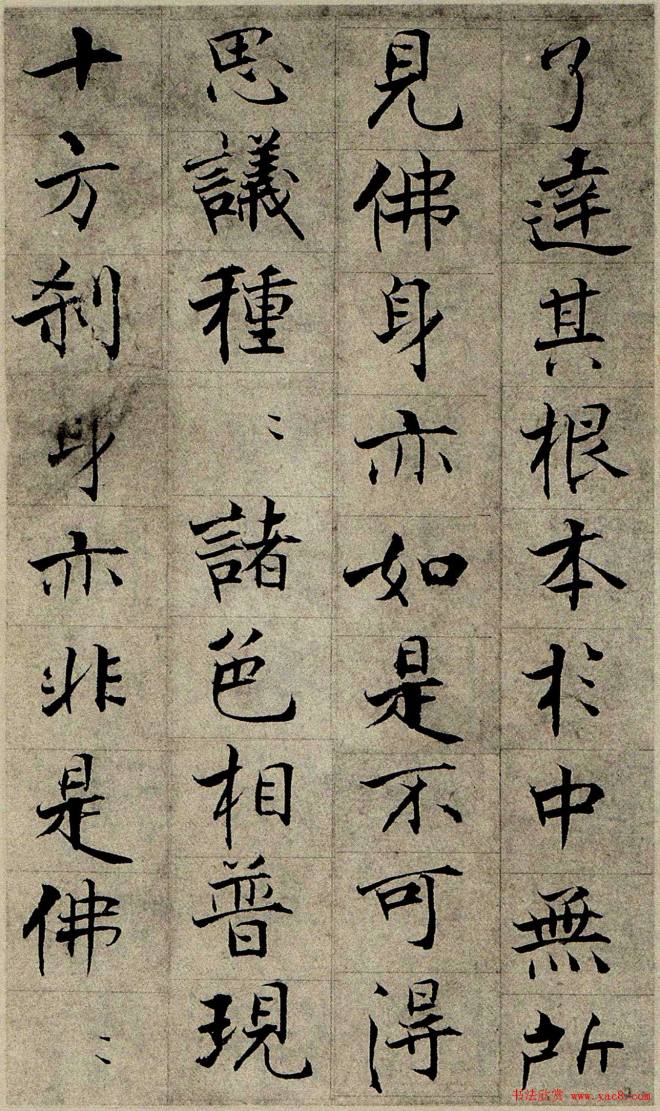 了達其根本於中無所
見佛身亦如是不可得
思議種〻諸色相普現
十方刹身亦非是佛〻
书法欣赏 www.xac8.com